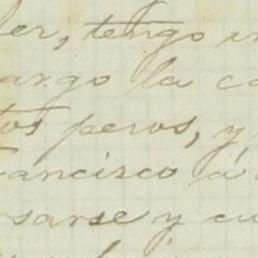 ler, tengo en
argo la ca
tos peros, y
rancisco á
sarse y cu